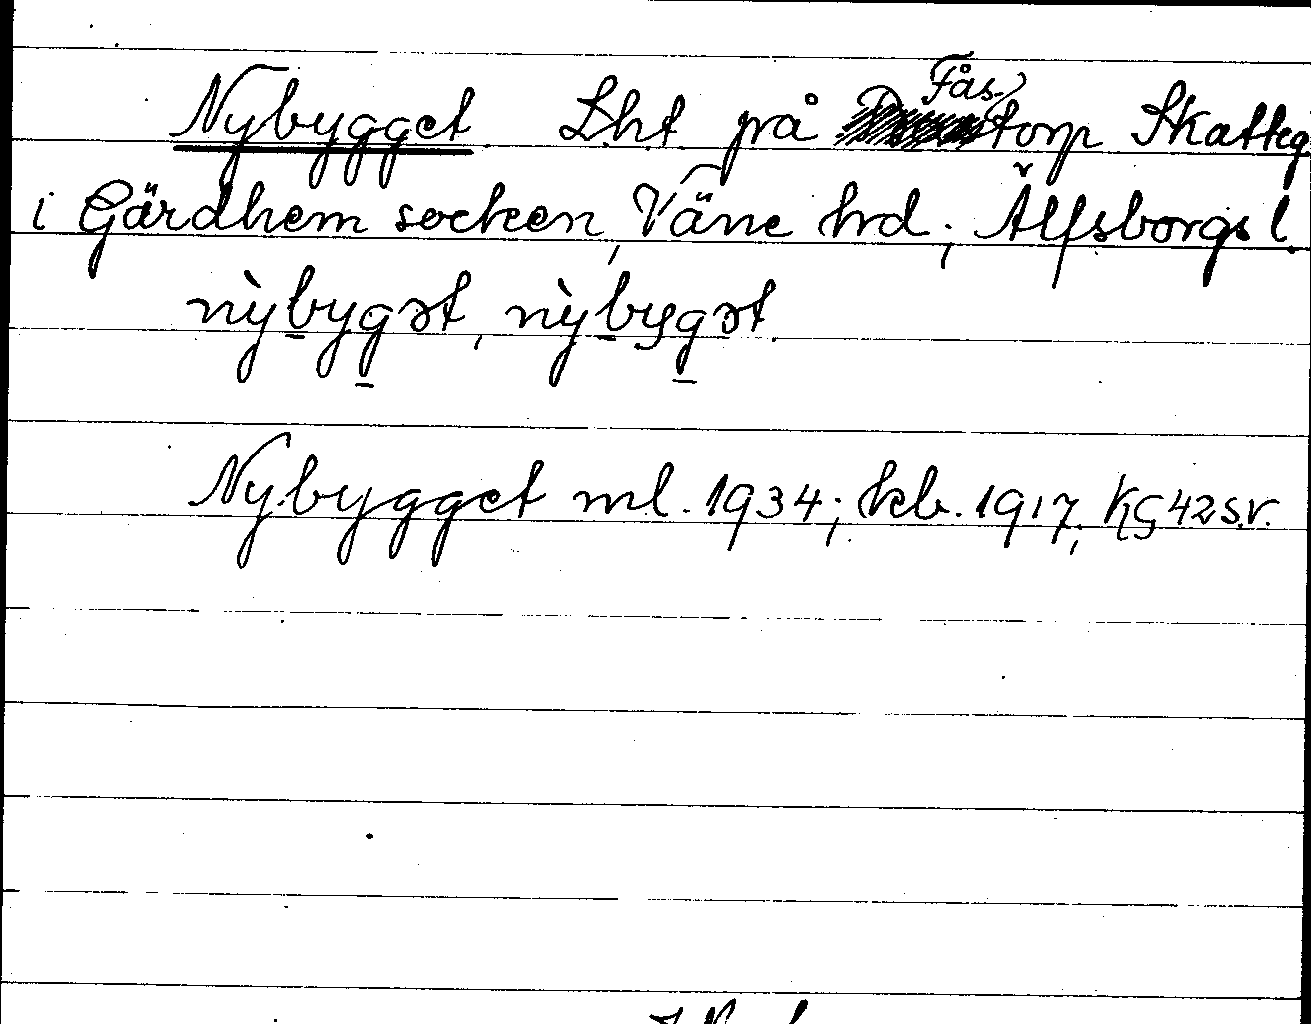 Nybygget Lht på Fåstorp Skatteg
i Gärdhem socken, Väne hrd; Älfsborgs l.
nỳbygət, nỳbygət.
Nybygget ml. 1934; kb. 1917; KG 42 s.v.